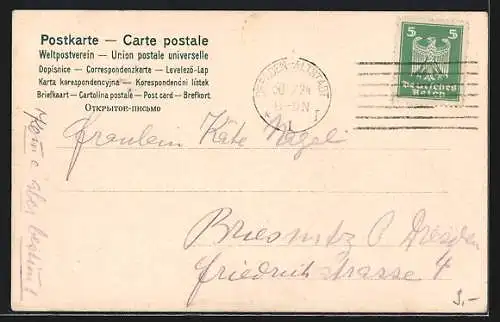 Postkarte — Carte postale
Weltpostverein — Union postale universelle
Dopisnice — Correspondenzkarte — Levelező-Lap
Karta korespondencyjna — Korespondenčni lístek
Briefkart — Cartolina postale — Post card — Brefkort
Открытое-письмо
DRESDEN-ALTSTADT
24
8-9N
1
5 5
Deutsches
Reich
Fräulein Käte Nagel
Briesnitz b Dresden
Friedrichstrasse 4
Komme aber bestimmt
3.-